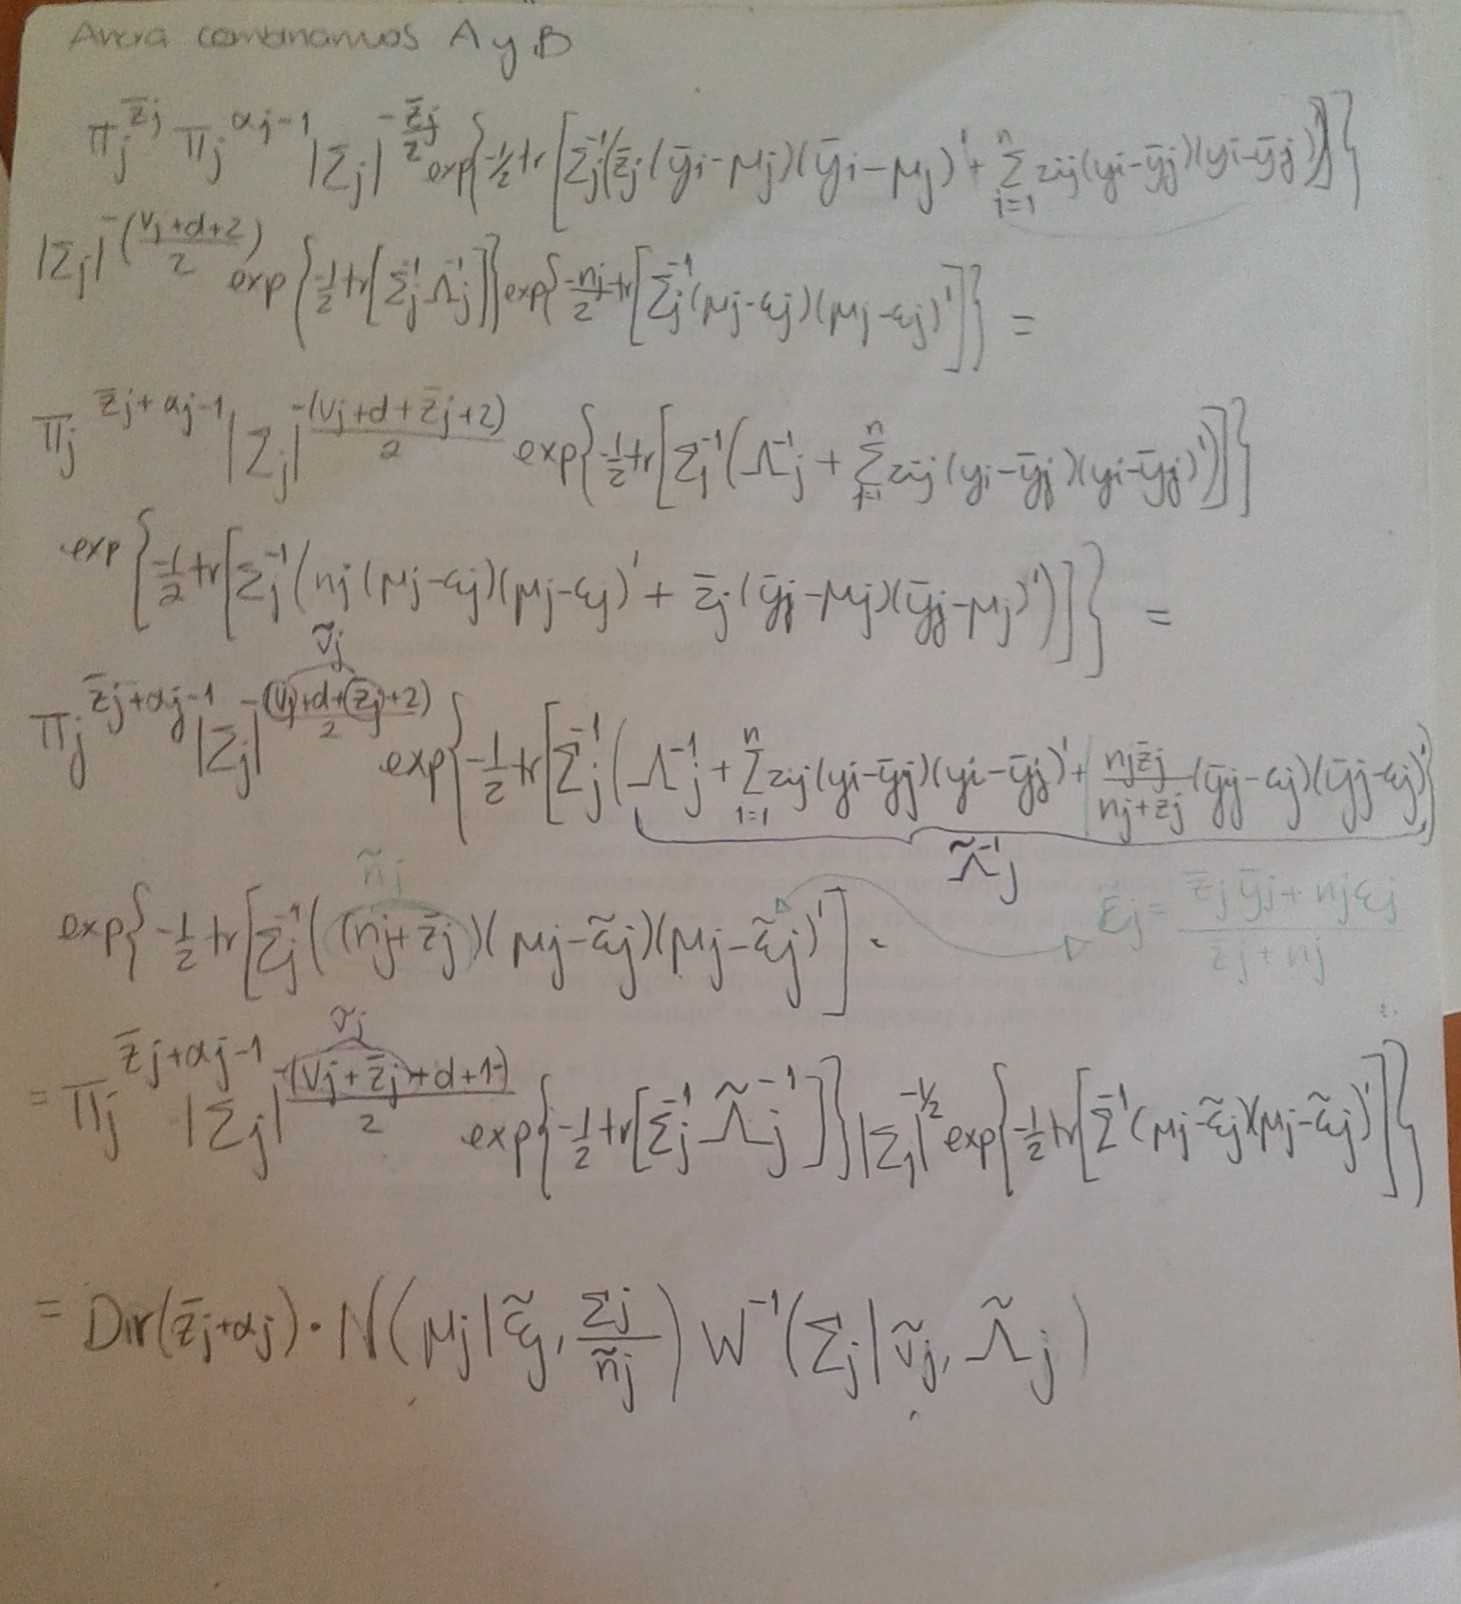 Ahora combinamos A y B
πj^z̄j πj^αj-1 |Σj|^-z̄j/2 exp{-1/2 tr[Σj^-1(z̄j(ȳi-μj)(ȳi-μj)' + Σ_{i=1}^n zij(yi-ȳj)(yi-ȳj)')]}
|Σj|^-(νj+d+2)/2 exp{-1/2 tr[Σj^-1 Λj^-1]} exp{-nj/2 tr[Σj^-1(μj-εj)(μj-εj)']} =
πj^z̄j+αj-1 |Σj|^-(νj+d+z̄j+2)/2 exp{-1/2 tr[Σj^-1(Λj^-1 + Σ_{i=1}^n zij(yi-ȳj)(yi-ȳj)')]}
exp{-1/2 tr[Σj^-1(nj(μj-εj)(μj-εj)' + z̄j(ȳj-μj)(ȳj-μj)')]} =
ṽj
πj^z̄j+αj-1 |Σj|^-(νj+d+z̄j+2)/2 exp{-1/2 tr[Σj^-1(Λj^-1 + Σ_{i=1}^n zij(yi-ȳj)(yi-ȳj)' + nj z̄j/nj+z̄j (ȳj-εj)(ȳj-εj)'}
Λ̃j^-1
ñj
exp{-1/2 tr[Σj^-1((nj+z̄j)(μj-ε̃j)(μj-ε̃j)'] · ε̃j = z̄jȳj+njεj/z̄j+nj
ṽj
= πj^z̄j+αj-1 |Σj|^-(νj+z̄j+d+1)/2 exp{-1/2 tr[Σj^-1 Λ̃j^-1]} |Σj|^-1/2 exp{-1/2 tr[Σ^-1(μj-ε̃j)(μj-ε̃j)']}
= Dir(z̄j+αj) · N(μj|ε̃j, Σj/ñj) W^-1(Σj|ṽj, Λ̃j)